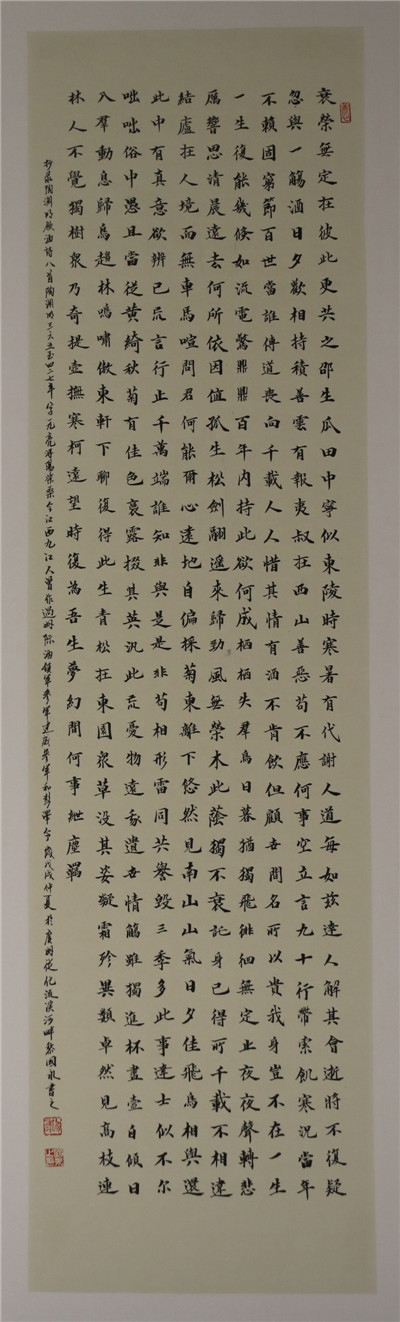 衰榮無定在彼此更共之邵生瓜田中寧似東陵時寒暑有代謝人道每如茲達人解其會逝時不復疑
忽與一觴酒日夕歡相持積善雲有報夷叔在西山善惡苟不應何事空立言九十行帶索飢寒況當年
不賴固窮節百世當誰傳道喪向千載人人惜其情有酒不肯飲但顧世間名所以貴我身豈不在一生
一生復能幾倏如流電驚鼎鼎百年內持此欲何成栖栖失羣鳥日暮猶獨飛徘徊無定止夜夜聲轉悲
厲響思清晨遠去何所依因值孤生松劍翮遙來歸勁風無榮木此蔭獨不衰託身已得所千載不相違
結廬在人境而無車馬喧問君何能爾心遠地自偏採菊東離下悠然見南山山氣日夕佳飛鳥相與還
此中有真意欲辨已忘言行止千萬端誰知非與是是非苟相形雷同共譽毀三季多此事達士似不尔
咄咄俗中愚且當從黃綺秋菊有佳色裛露掇其英汎此忘憂物遠我遺世情觴雖獨進杯盡壺自傾日
入羣動息歸鳥趨林鳴嘯傲東軒下聊復得此生青松在東園眾草沒其姿凝霜殄異類卓然見高枝連
林人不覺獨樹眾乃奇提壺撫寒柯遠望時復為吾生夢幻間何事紲塵羈
抄录陶淵明飲酒詩八首陶淵明三六五至四二七年字元亮潯陽柴桑今江西九江人曾作過州祭酒鎮軍參軍建威參軍和彭澤令歲戊戌仲夏於廣州從化流溪河畔黎國永書之